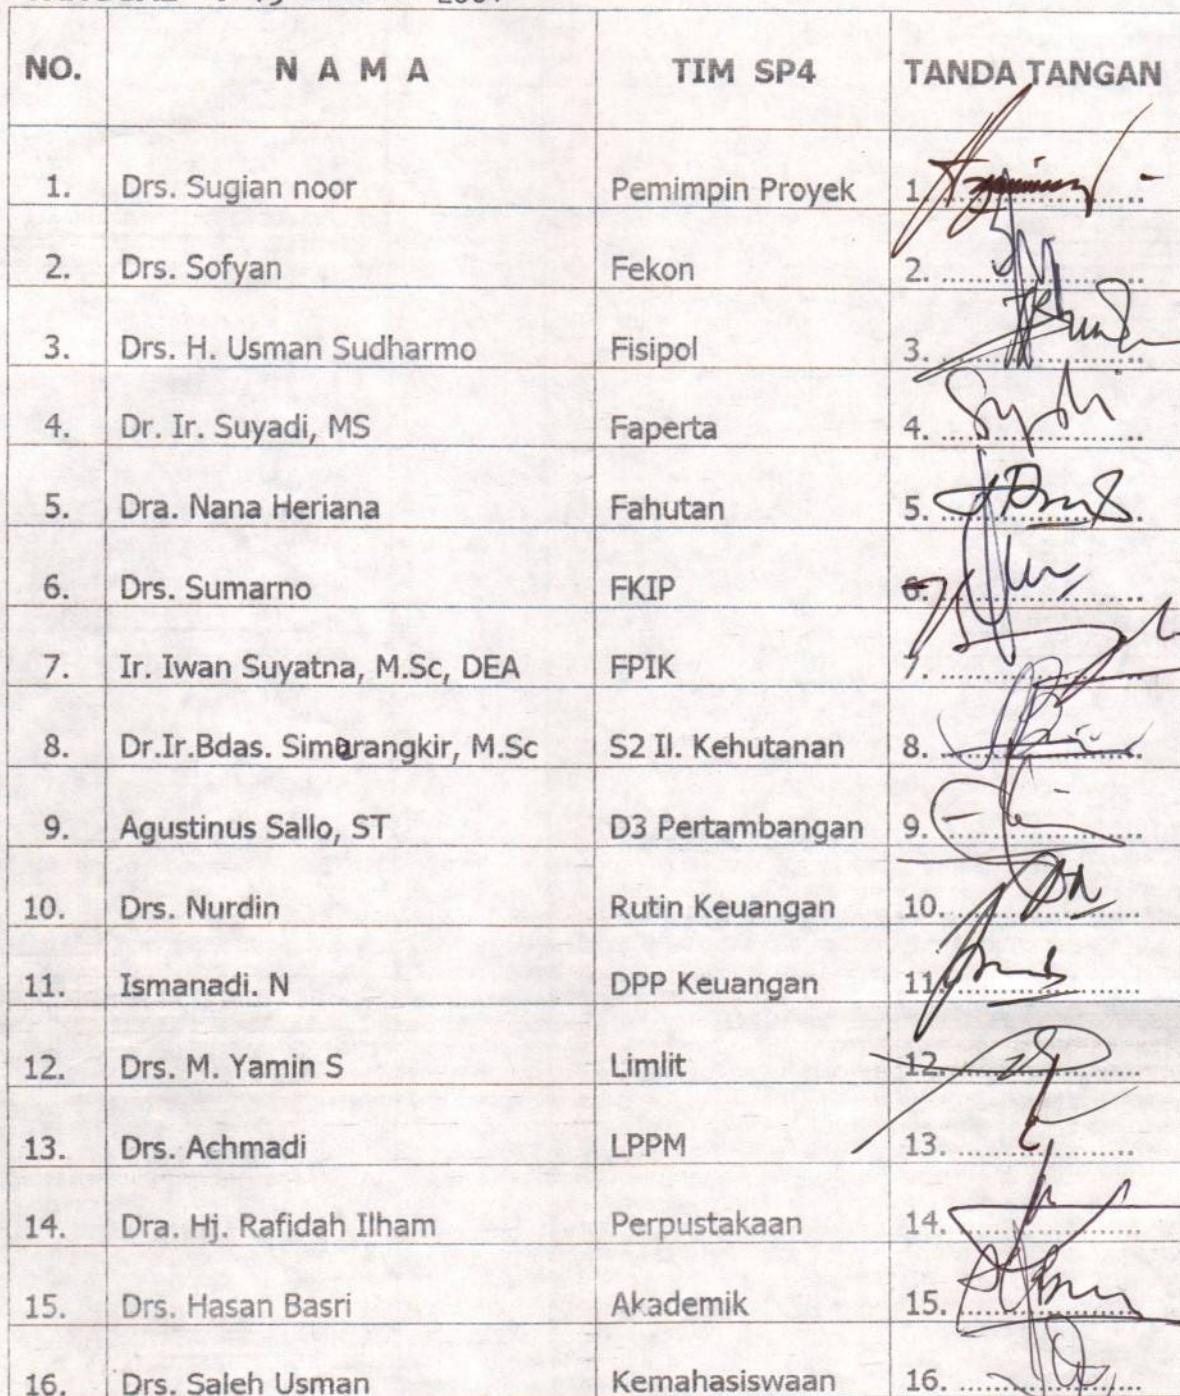 NO. N A M A TIM SP4 TANDA TANGAN
1. Drs. Sugian noor Pemimpin Proyek 1. ..........
2. Drs. Sofyan Fekon 2. ..........
3. Drs. H. Usman Sudharmo Fisipol 3. ..........
4. Dr. Ir. Suyadi, MS Faperta 4. ..........
5. Dra. Nana Heriana Fahutan 5. ..........
6. Drs. Sumarno FKIP 6. ..........
7. Ir. Iwan Suyatna, M.Sc, DEA FPIK 7. ..........
8. Dr.Ir.Bdas. Simarangkir, M.Sc S2 Il. Kehutanan 8. ..........
9. Agustinus Sallo, ST D3 Pertambangan 9. ..........
10. Drs. Nurdin Rutin Keuangan 10. ..........
11. Ismanadi. N DPP Keuangan 11. ..........
12. Drs. M. Yamin S Limlit 12. ..........
13. Drs. Achmadi LPPM 13. ..........
14. Dra. Hj. Rafidah Ilham Perpustakaan 14. ..........
15. Drs. Hasan Basri Akademik 15. ..........
16. Drs. Saleh Usman Kemahasiswaan 16. ..........